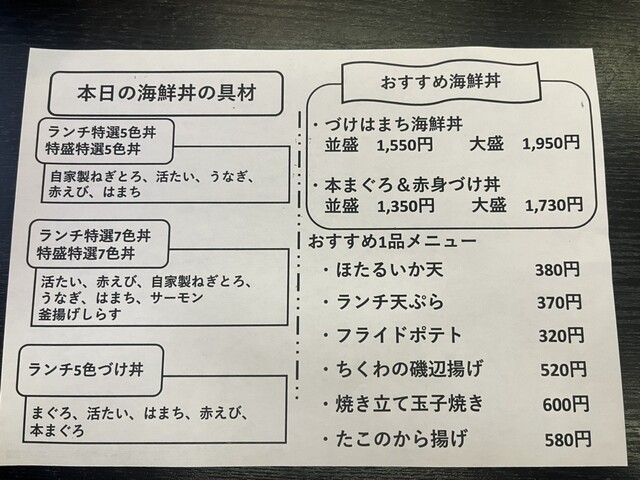 本日の海鮮丼の具材
ランチ特選5色丼
特盛特選5色丼
自家製ねぎとろ、活たい、うなぎ、
赤えび、はまち
ランチ特選7色丼
特盛特選7色丼
活たい、赤えび、自家製ねぎとろ、
うなぎ、はまち、サーモン
釜揚げしらす
ランチ5色づけ丼
まぐろ、活たい、はまち、赤えび、
本まぐろ
おすすめ海鮮丼
・づけはまち海鮮丼
並盛 1,550円 大盛 1,950円
・本まぐろ&赤身づけ丼
並盛 1,350円 大盛 1,730円
おすすめ1品メニュー
・ほたるいか天 380円
・ランチ天ぷら 370円
・フライドポテト 320円
・ちくわの磯辺揚げ 520円
・焼き立て玉子焼き 600円
・たこのから揚げ 580円